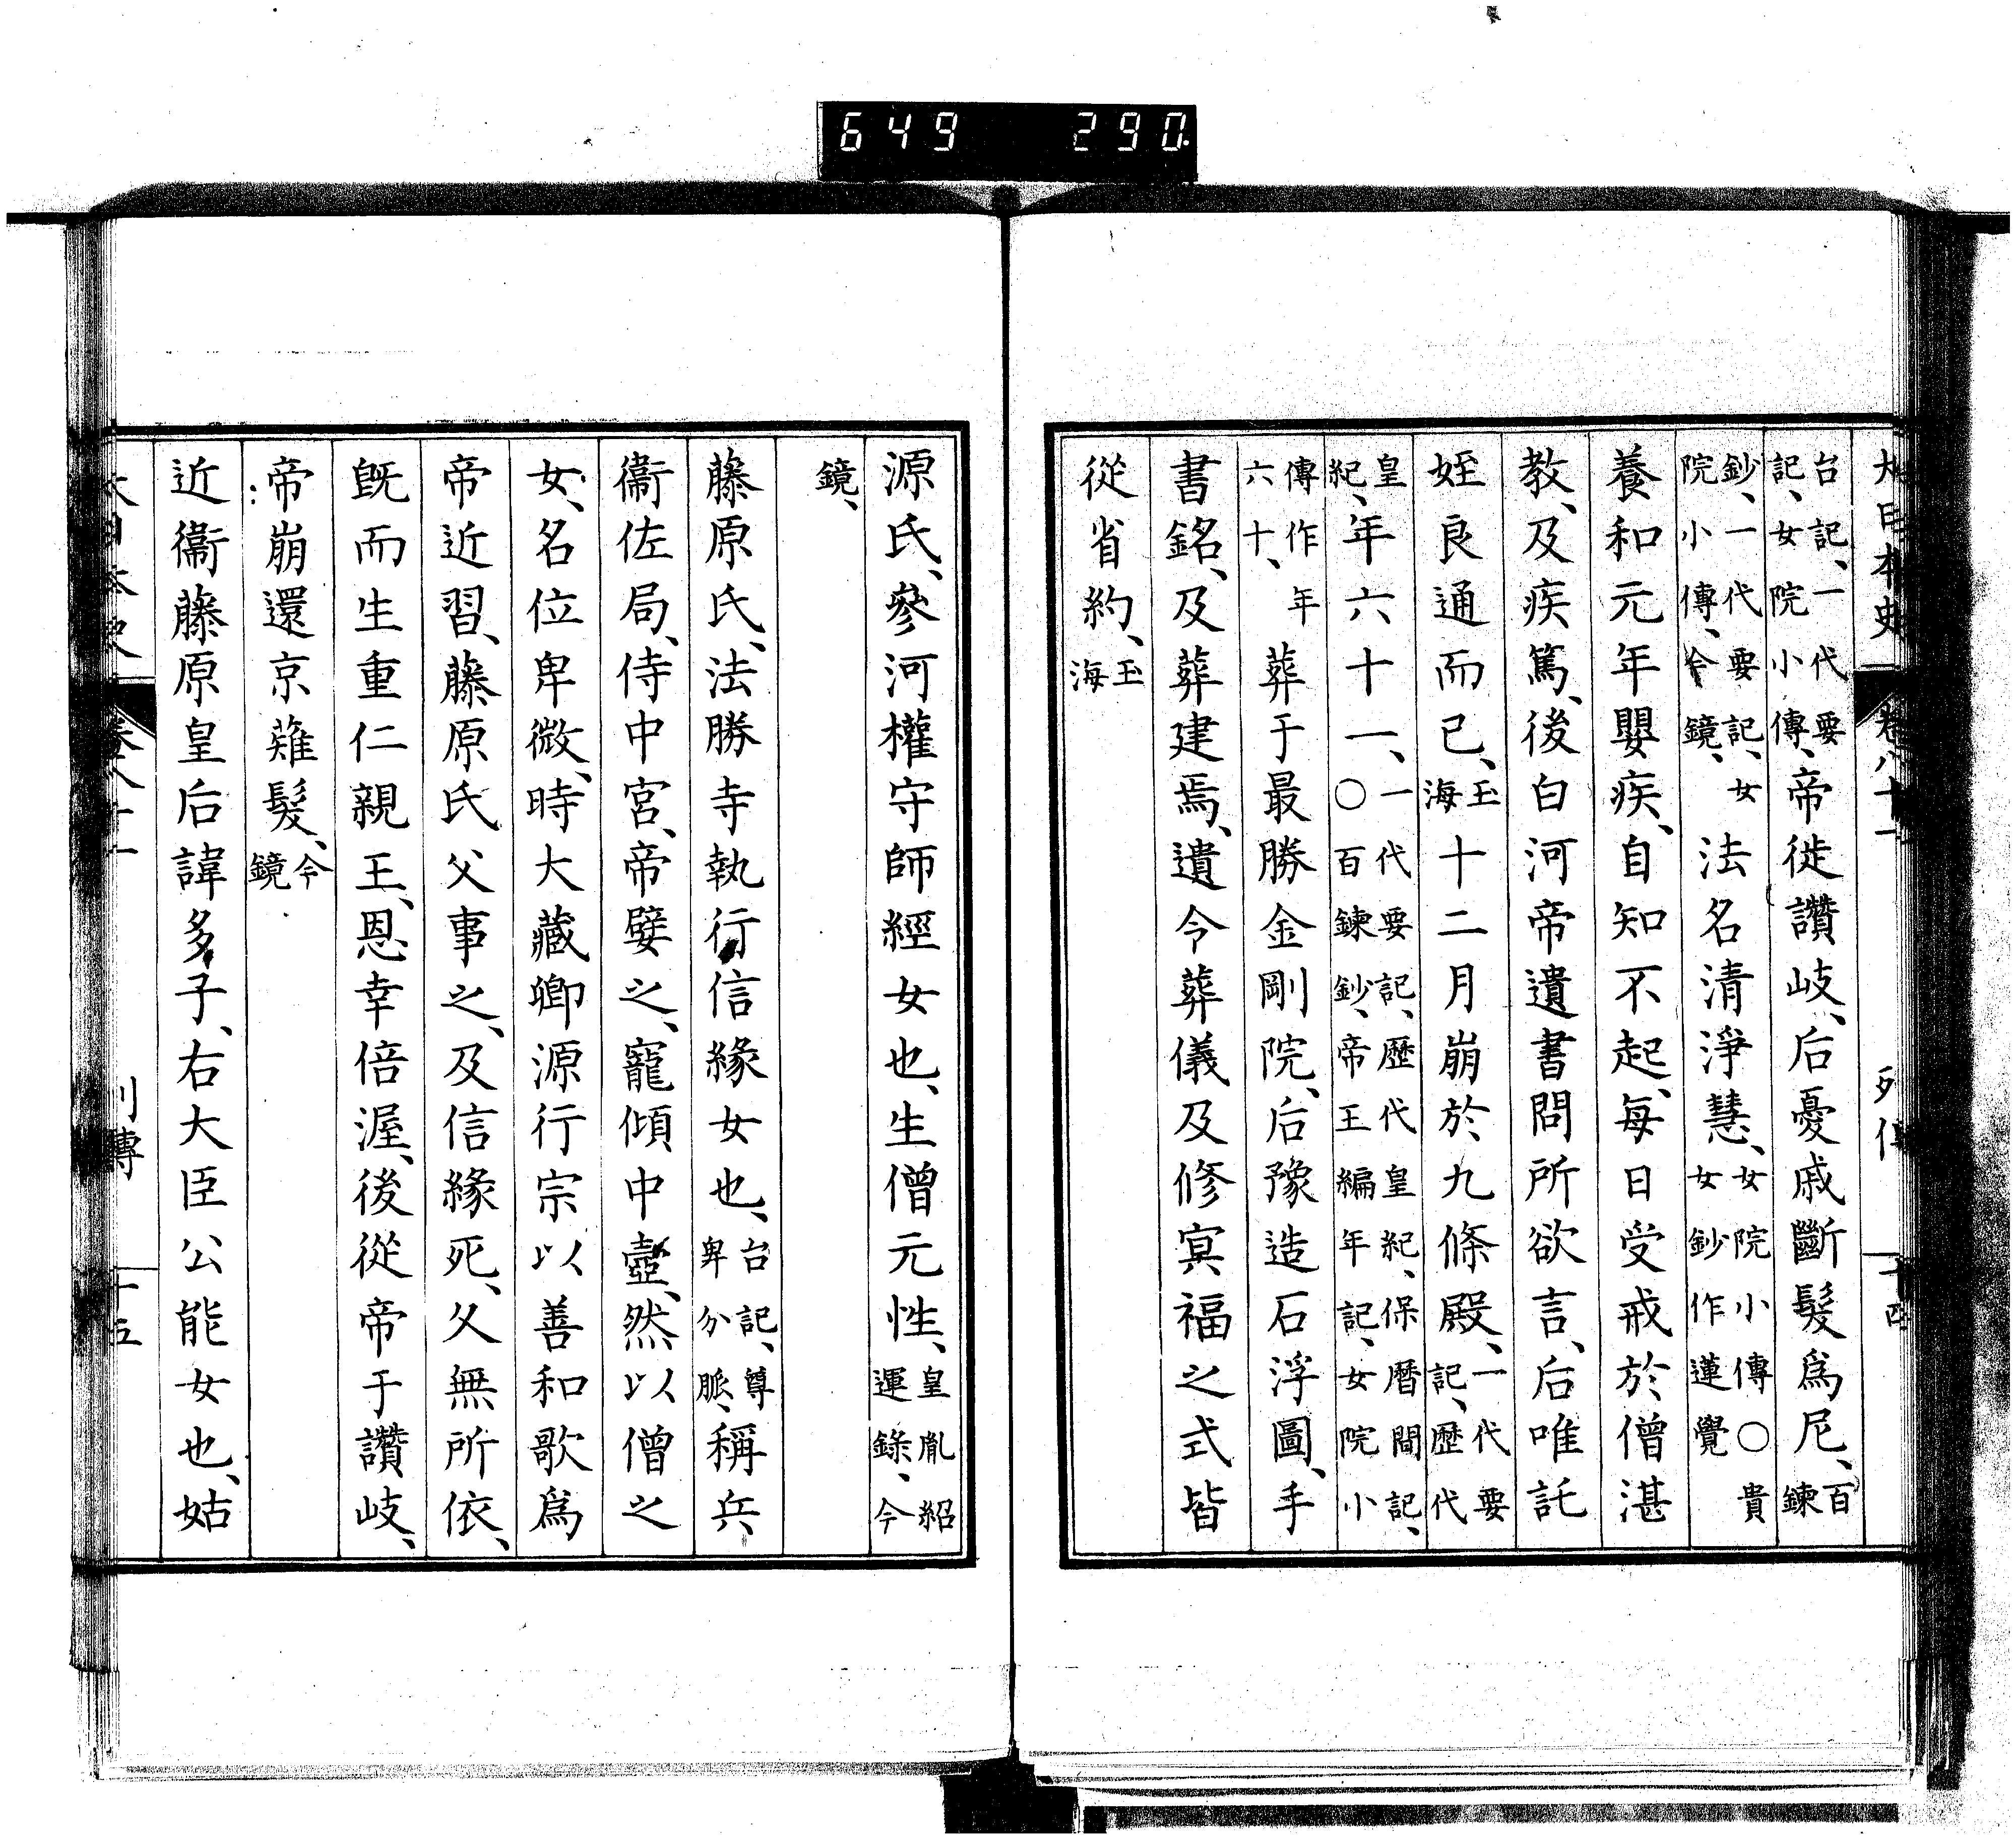 649 290
大日本史 卷八十一 列傳 十四
台記、一代要記、女院小傳、帝徙讚岐、后憂戚斷髮爲尼、百鍊
鈔、一代要記、女院小傳、今鏡、法名清淨慧、女院小傳〇貴女鈔作蓮覺
養和元年嬰疾、自知不起、每日受戒於僧湛
教、及疾篤、後白河帝遺書問所欲言、后唯託
姪良通而已、玉海十二月崩於九條殿、一代要記、歷代
皇紀、年六十一、一代要記、歷代皇紀、保曆間記、〇百鍊鈔、帝王編年記、女院小
傳作年六十、葬于最勝金剛院、后豫造石浮圖、手
書銘、及葬建焉、遺令葬儀及修冥福之式皆
從省約、玉海
源氏、參河權守師經女也、生僧元性、皇胤紹運錄、今
鏡、
藤原氏、法勝寺執行信緣女也、台記、尊卑分脈、稱兵
衞佐局、侍中宮、帝嬖之、寵傾中壼、然以僧之
女、名位卑微、時大藏卿源行宗以善和歌爲
帝近習、藤原氏父事之、及信緣死、久無所依、
旣而生重仁親王、恩幸倍渥、後從帝于讚岐、
帝崩還京薙髮、今鏡
近衞藤原皇后諱多子、右大臣公能女也、姑
大日本史 卷八十一 列傳 十五